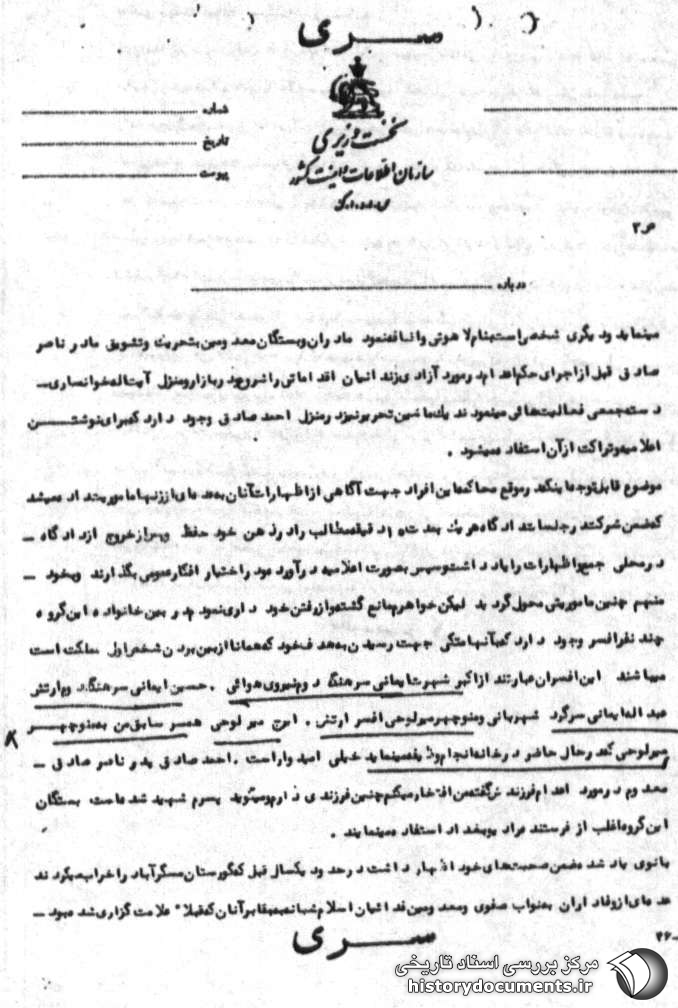 سری
نخست وزیری
سازمان اطلاعات و امنیت کشور
س.ا.و.ا.ک
شماره
تاریخ
پیوست
۳۶
درباره
مینماید و دیگری شخصی است بنام لاهوتی و اضافه نمود مادران و بستگان معدومین بتحریک و تشویق مادر ناصر
صادقی قبل از اجرای حکم اعدام در مورد آزادی زندانیان اقداماتی را شروع و در بازار و منزل آیت اله خوانساری –
دسته جمعی فعالیت هائی مینمودند یک ماشین تحریر نیز در منزل احمد صادقی وجود دارد که برای نوشتن
اعلامیه و تراکت از آن استفاده میشود .
موضوع قابل توجه اینکه در موقع محاکمه این افراد جهت آگاهی از اظهارات آنان به عده ای از زنها ماموریت داده میشد
که ضمن شرکت در جلسات دادگاه هر یک بمدت ده دقیقه مطالب را در ذهن خود حفظ و پس از خروج از دادگاه –
در محلی جمع و اظهارات را یادداشت و سپس بصورت اعلامیه در آورده و در اختیار افکار عمومی بگذارند و بخود –
منهم چنین ماموریتی محول گردید لیکن خواهرم مانع گشته و از رفتن خودداری نمودم در بین خانواده این گروه
چند نفر افسر وجود دارد که به آنها متکی جهت رسیدن به هدف خود که همانا از بین بردن شخص اول مملکت است
میباشند این افسران عبارتند از اکبر شهرت ایمانی سرهنگ دوم نیروی هوائی . حسین ایمانی سرهنگ دوم ارتش
عبداله ایمانی سرگرد شهربانی و منوچهر میرلوحی افسر ارتش . ایرج میرلوحی همسر سابق من به منوچهر
میرلوحی که در حال حاضر در خانه انجام وظیفه مینماید خیلی امیدوار است . احمد صادقی پدر ناصر صادقی –
معدوم در مورد اعدام فرزندش گفته من افتخار میکنم چنین فرزندی دارم و میگوید پسرم شهید شده است بستگان
این گروه اغلب از فرستنده رادیو بغداد استفاده مینمایند .
بانوی یاد شده ضمن صحبت های خود اظهار داشت در حدود یکسال قبل که گورستان مسگرآباد را خراب میکردند
عده ای از وفاداران به نواب صفوی و معدومین فدائیان اسلام شبانه به مقابر آنان که قبلاً علامت گزاری شده بود –
۲۶-
سری
مرکز بررسی اسناد تاریخی
historydocuments.ir